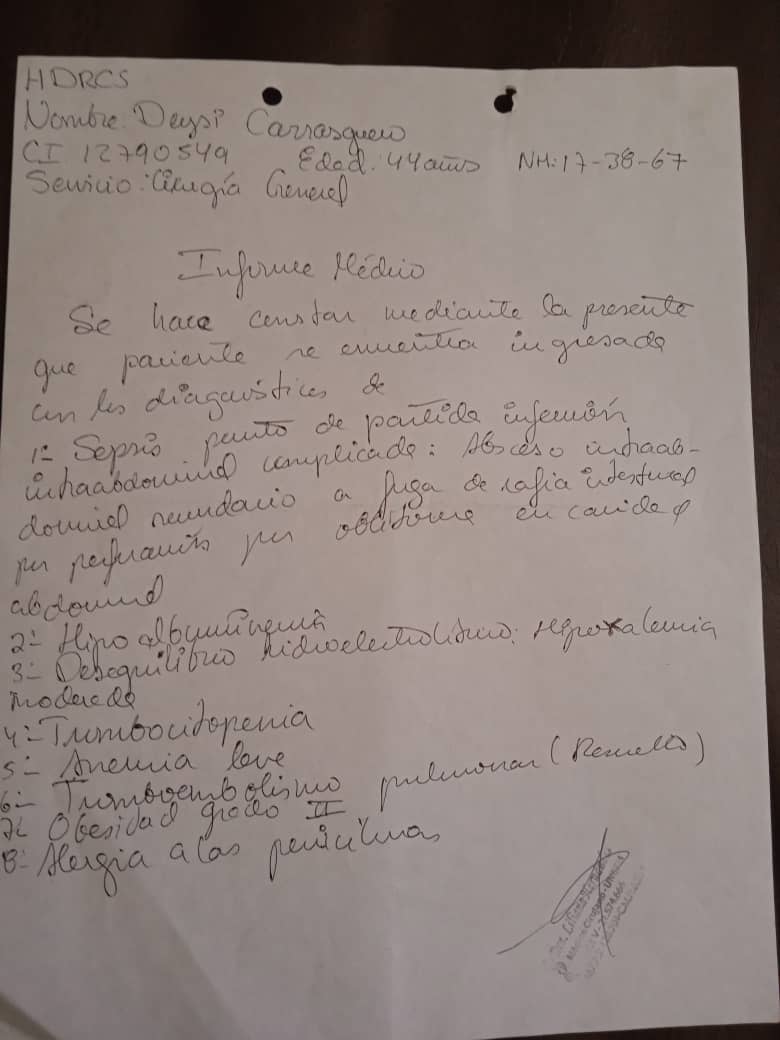 HDRCS
Nombre: Deysi Carrasquero
CI 12790549 Edad: 44 años NH: 17-38-67
Servicio: Cirugía General
Informe Médico
Se hace constar mediante la presente
que paciente se encuentra ingresada
con los diagnósticos de
1- Sepsis punto de partida infección
intraabdominal complicada: Absceso intraab-
dominal secundario a fuga de rafia intestinal
por perforación por en cavidad
abdominal
2- Hipoalbuminemia
3- Desequilibrio hidroelectrolítico: Hipokalemia
moderada
4- Trombocitopenia
5- Anemia leve
6- Tromboembolismo pulmonar (Resuelto)
7- Obesidad grado II
8- Alergia a las penicilinas
Dra.